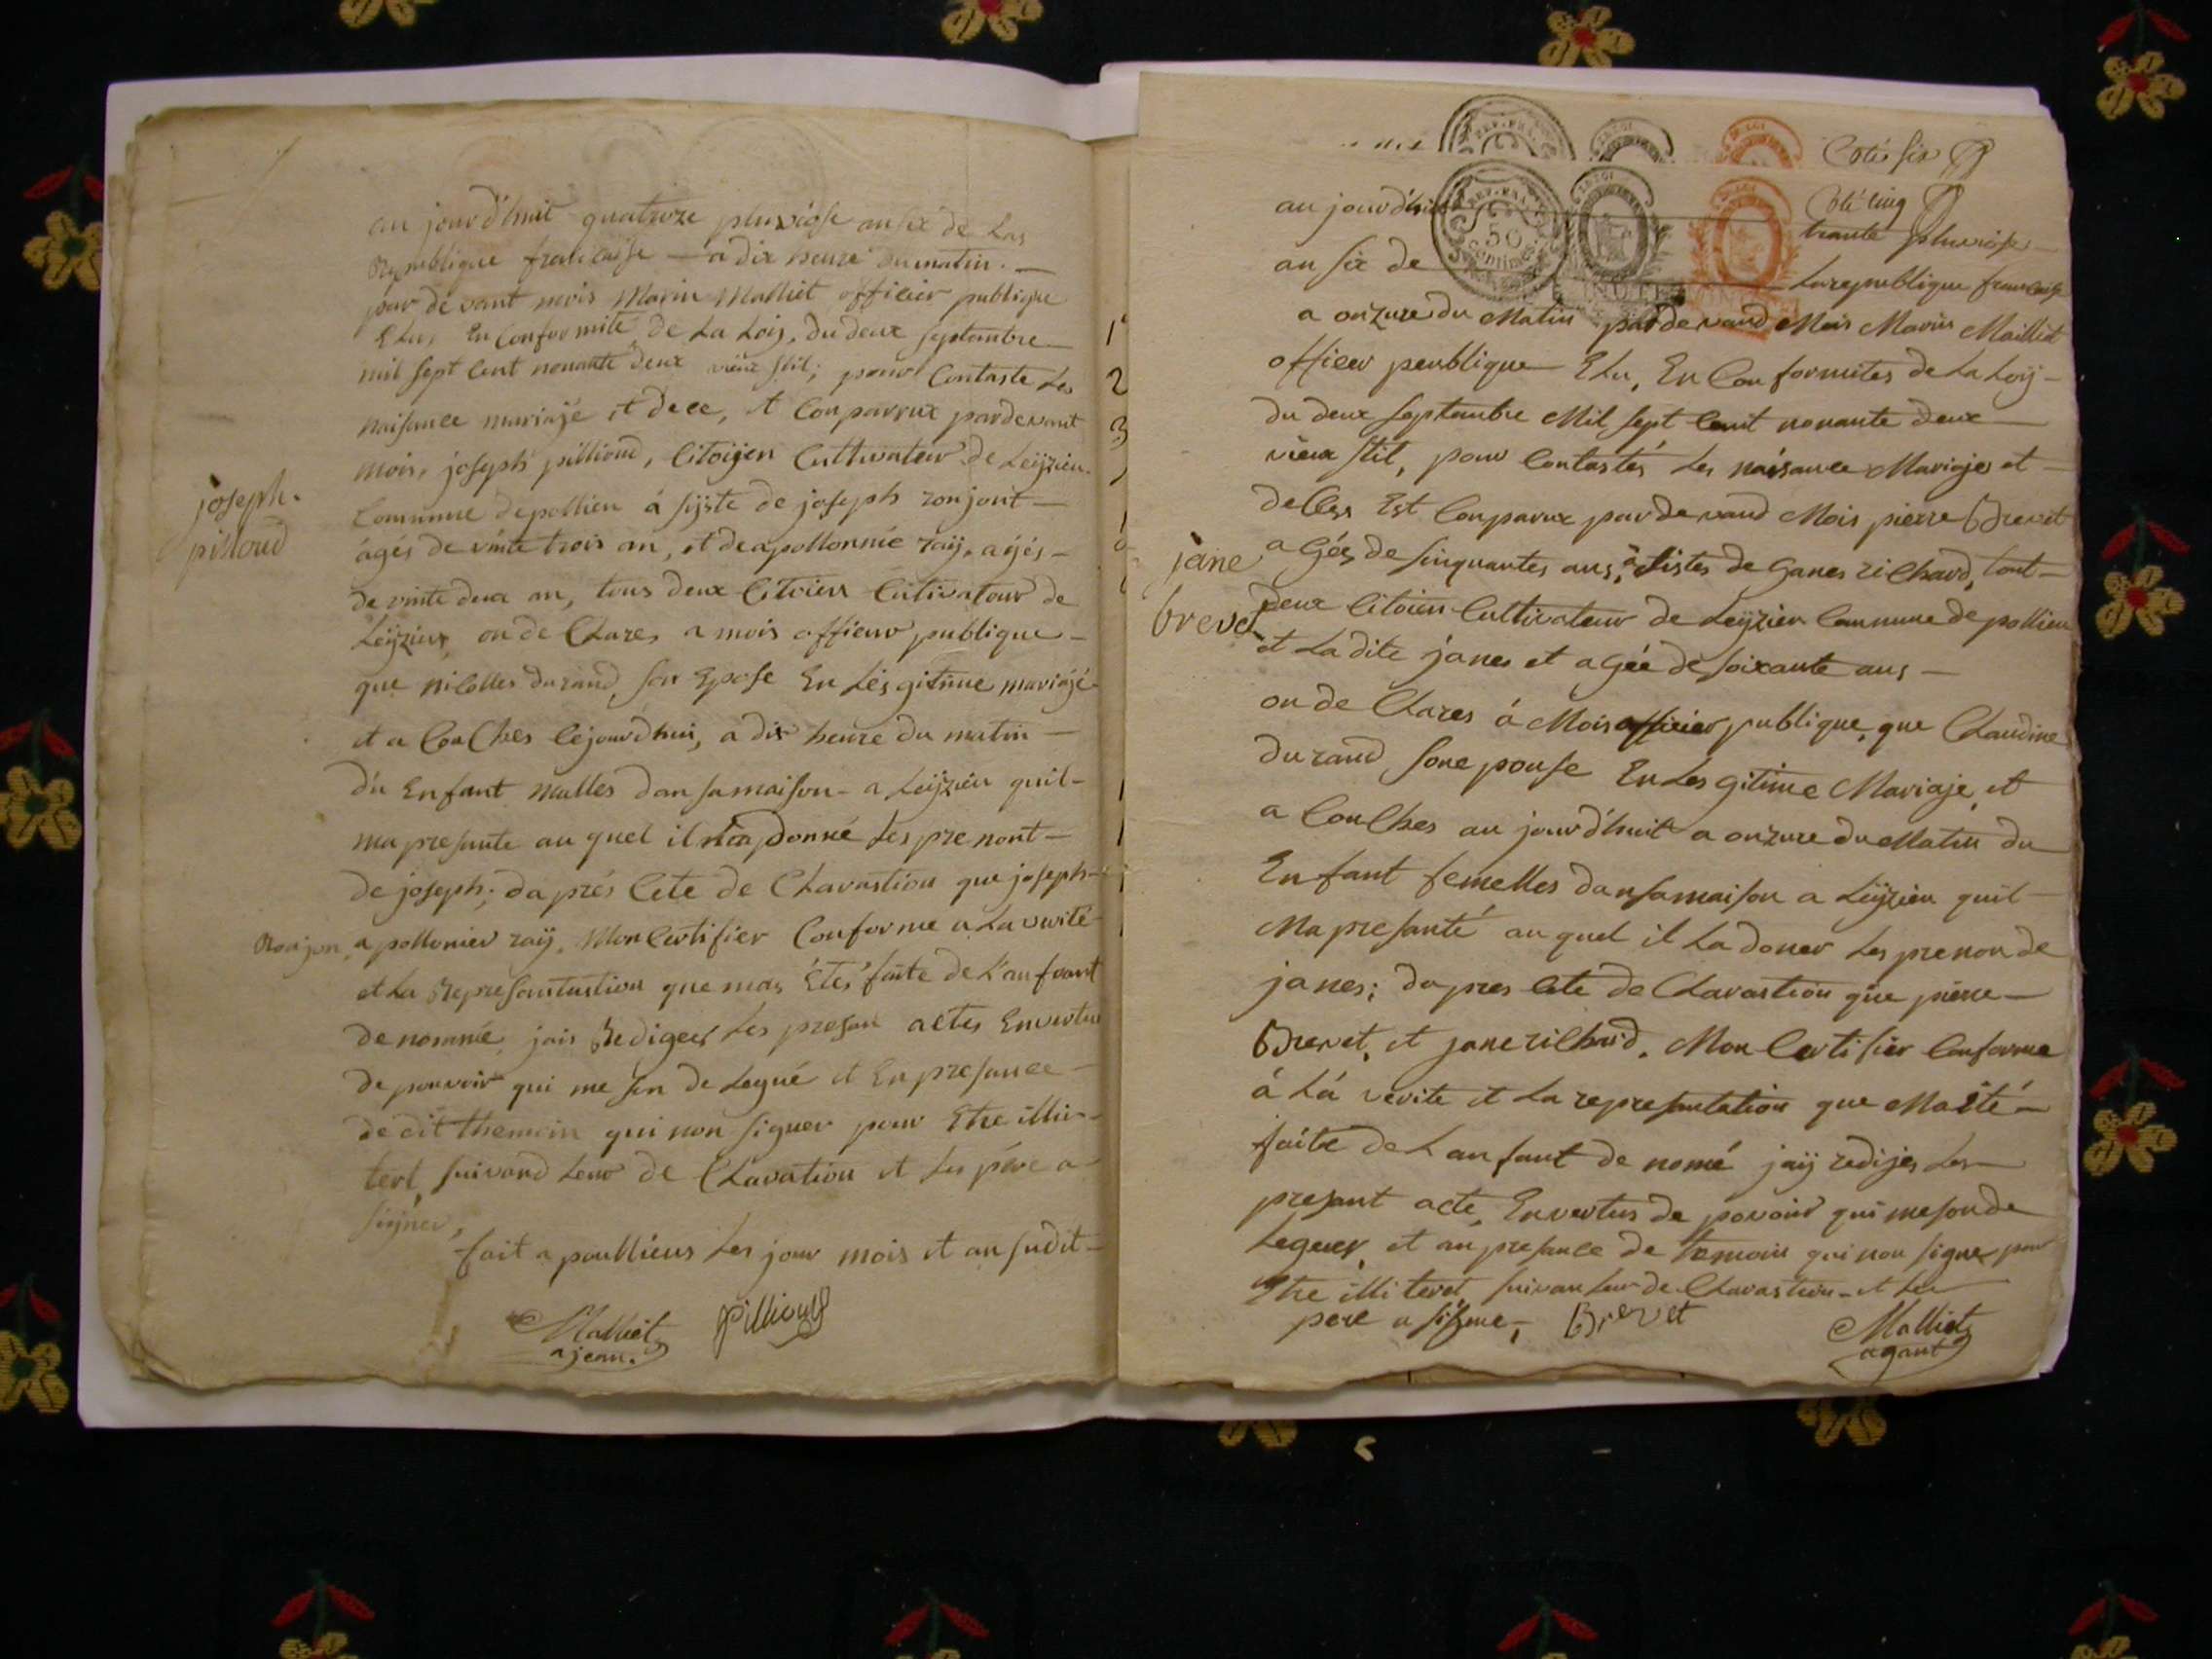 au jourd'huit quatorze pluviôse an six de Las
Republique francaisse — a dix heure du matin. —
par de vant mois Marin Malliet officier publique
Elus, En Conformite de La Loij, du deux septambre —
mil sept Cent nonante deux vieux stil; pour Contaste Les
naisance mariaje et dece, et Conparrux pardevant
mois, joseph pillioud, Citoijen Cultivateur de Leijzieu.
joseph.
pilloud
Commune depollieu á sijste de joseph ronjont —
ágés de vinte trois an, et de apollonnie raij, agés —
de vinte deux an, tous deux Citoien Cultivatour de
Leijzieux on de Clares a mois officier publique —
que nicolles durand, son Epose En Lésgitime mariàjé
et a CouChes Cejourdhui, a dix heure du matin —
du Enfant malles dan samaison - a Leijzieu quil -
ma presante au quel il donné Les pre nont —
de joseph; daprés Cete de Clarastion que joseph —
Ronjon, a pollonier raij. Mon Certifier Conforme a La verité
et La Represantastion que mas Étés faite de L'anfvant
de nommé, jais Rediger Les presan actes Envertus
de pouvoir qui me son de Legué et En presance —
de cit themoin qui non signer pour Etre illi-
teré, suivand Leur de Claration et Les père a -
signer,
fait a poullieus Les jour mois et an sudit —
Malliet
ajean.
Pillioud
Cotés six
Coté cinq
au jourd'huit
trante pluviose —
an six de
La republique francaise
a onzure du Matin par de vand Mois Marin Malliet
officer peublique Elu, En Con formites de La Loij —
du deux Septambre Mil Sept Cent nonante deux —
vieux stil, pour Contastés Les naisance Mariaje et —
deCes Est Conparux par de vand Mois pierre Brevet
jane
brevet
a Gés, de Sinquantes ans, a sistes de Ganes riChard, tout —
deux Citoien Cultivateur de Leijzieu Commune de pollieu
et La dite janes et a gée de soixante ans —
on de Clares á Mois officier publique, que Claudine
durand sone pouse En Les gitime Mariaje, et
a CouChes au jourd'huit a onzure du Matin du
Enfant femelles dan samaison a Leijzieu quil —
Ma presanté au quel il La doner Les prenon de
janes; da pres Cete de Clarastion que pierre —
Brevet, et jane riChard. Mon Certifier Conforme
á Lá verite et La represantation que Ma Eté —
faite de L an fant de nomé jaij redijes Les —
presant acte, Envertus de povoir qui me son de
Leguer, et an presance de temoin qui non signer pour
Etre illi teret, suivan Leur de Clarastion - et Les
pere a signe, Brevet
Malliet
agant